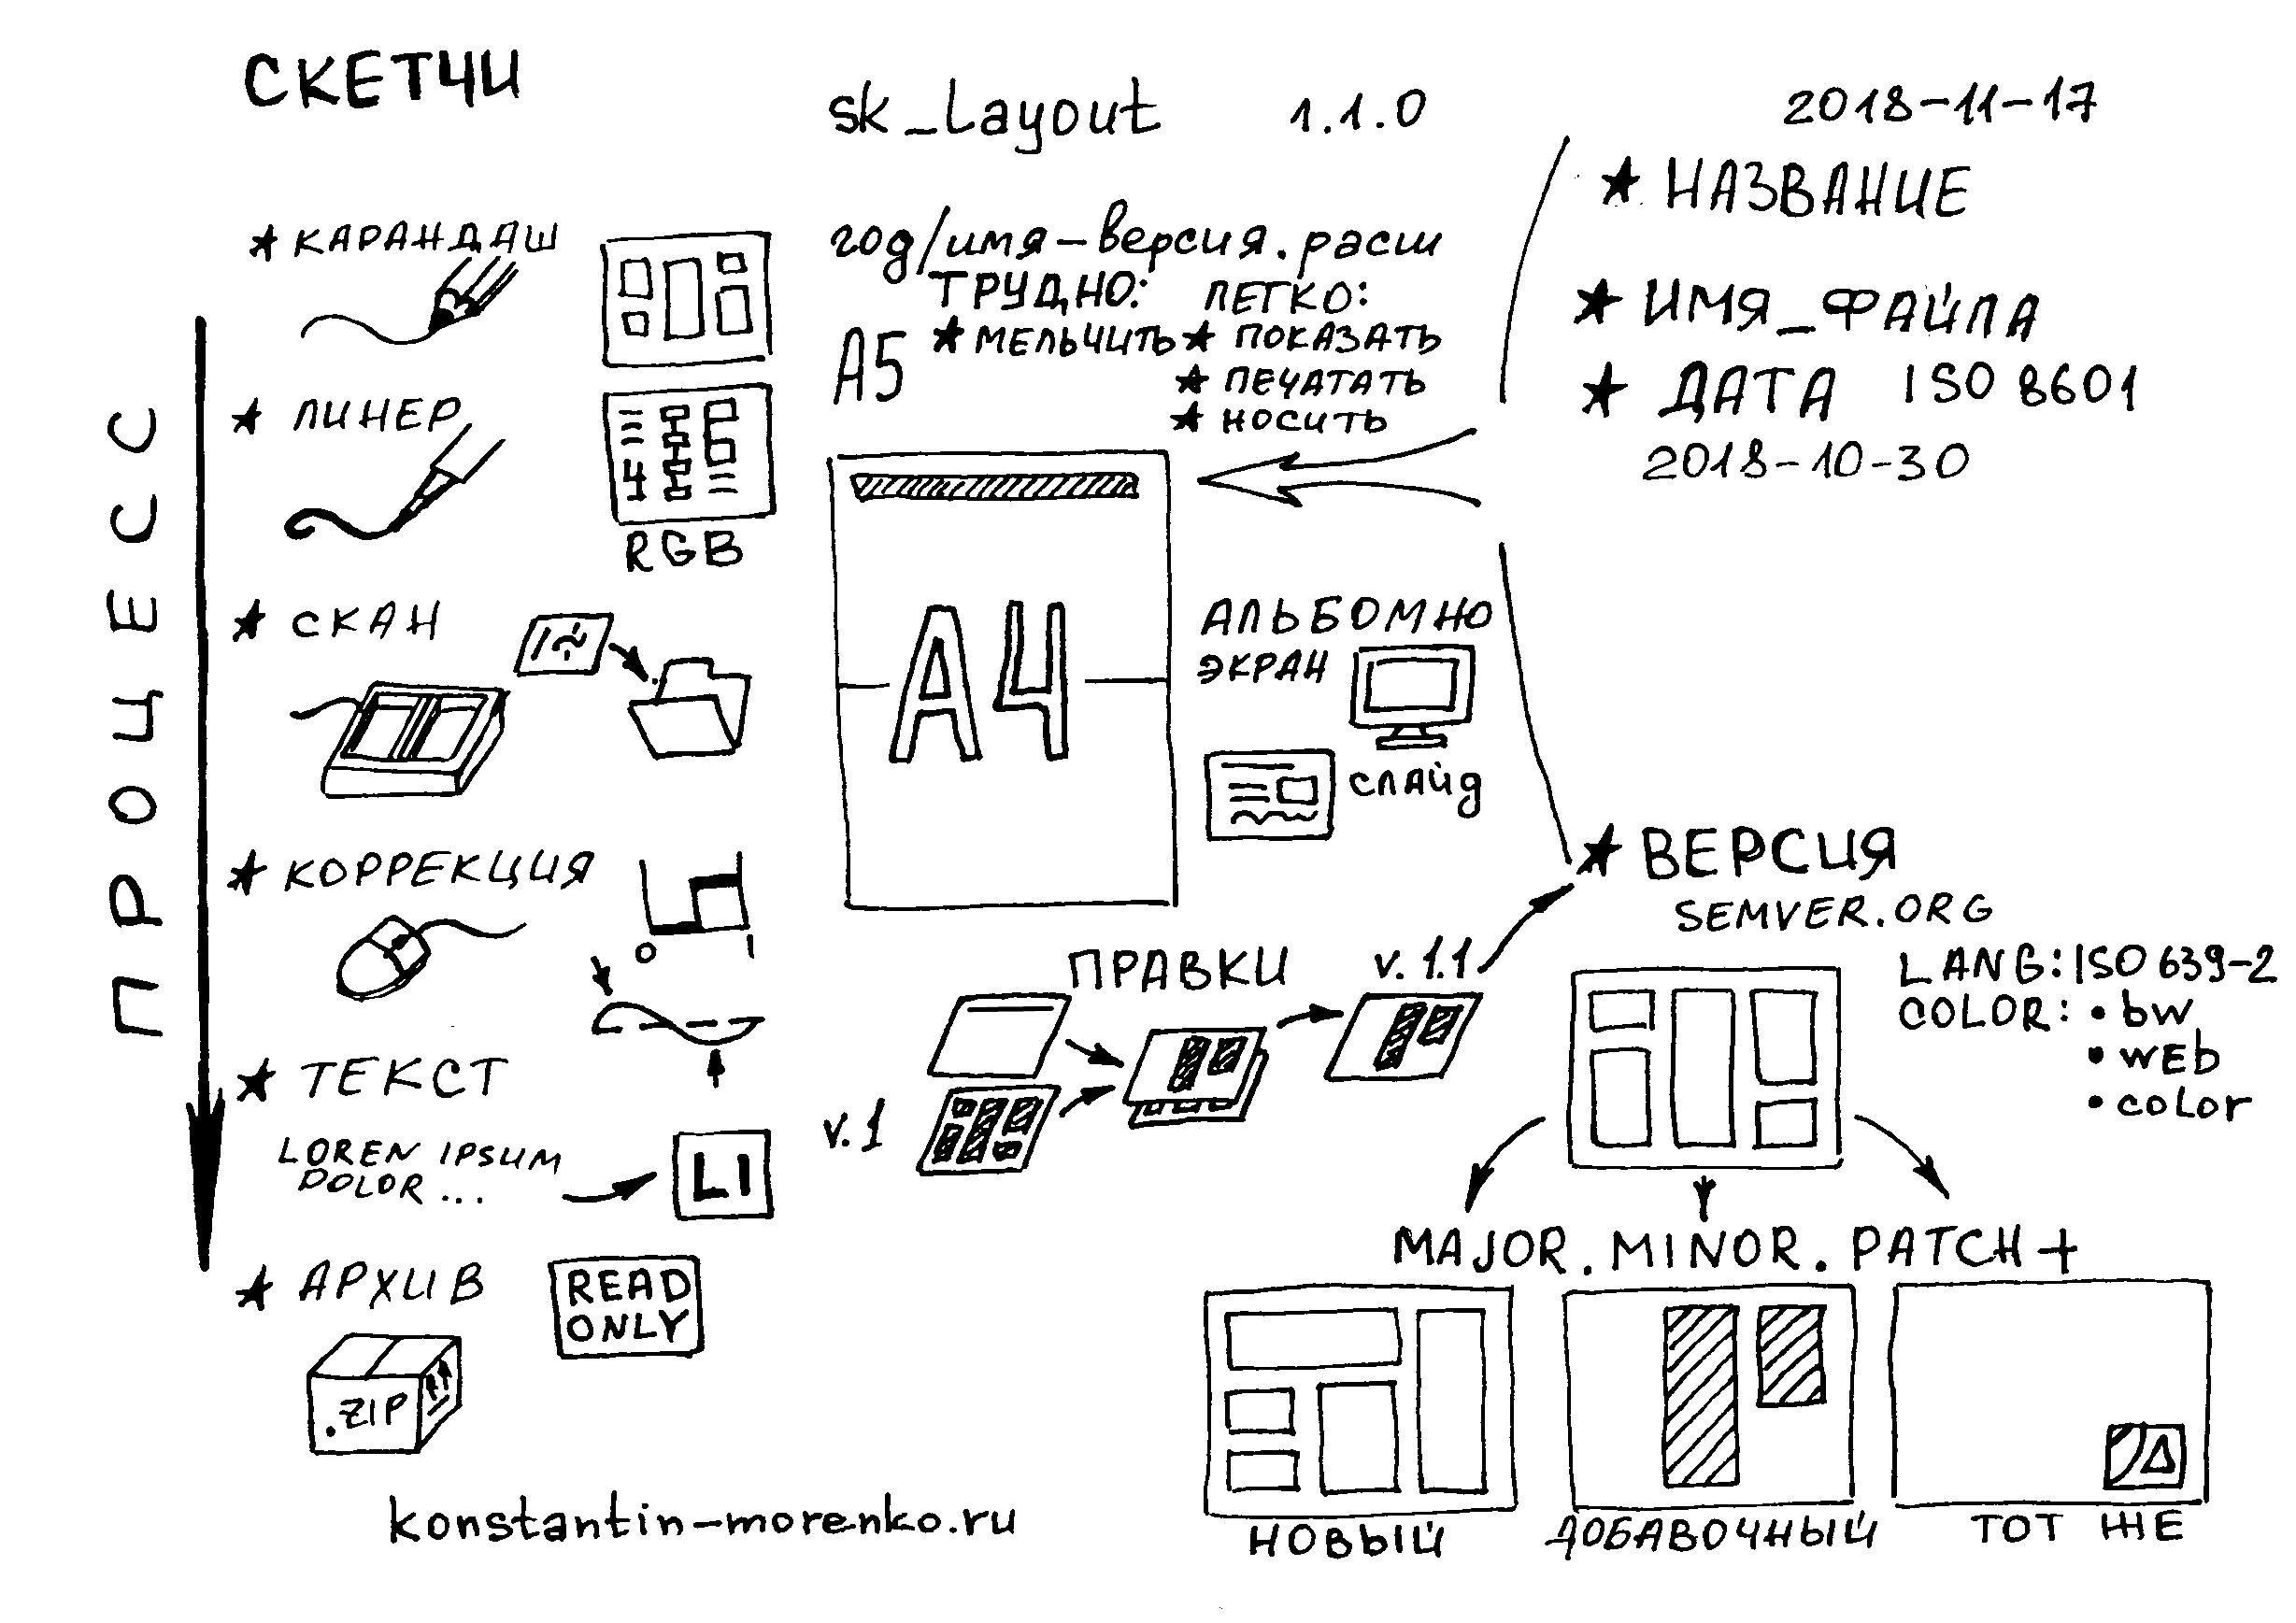 СКЕТЧИ
sk_Layout 1.1.0 2018-11-17
ПРОЦЕСС
★ КАРАНДАШ
★ ЛИНЕР
RGB
★ СКАН
★ КОРРЕКЦИЯ
0 1
★ ТЕКСТ
LOREN IPSUM
DOLOR ...
LI
★ АРХИВ
READ
ONLY
.ZIP
год/имя-версия.расш
А5
ТРУДНО:
★ МЕЛЬЧИТЬ
ЛЕГКО:
★ ПОКАЗАТЬ
★ ПЕЧАТАТЬ
★ НОСИТЬ
А4
АЛЬБОМНО
ЭКРАН
СЛАЙД
★ НАЗВАНИЕ
★ ИМЯ_ФАЙЛА
★ ДАТА ISO 8601
2018-10-30
★ ВЕРСИЯ
SEMVER.ORG
ПРАВКИ
v.1
v.1.1
LANG: ISO 639-2
COLOR: • bw
• WEB
• COLOR
MAJOR.MINOR.PATCH+
НОВЫЙ
ДОБАВОЧНЫЙ
ТОТ ЖЕ
konstantin-morenko.ru